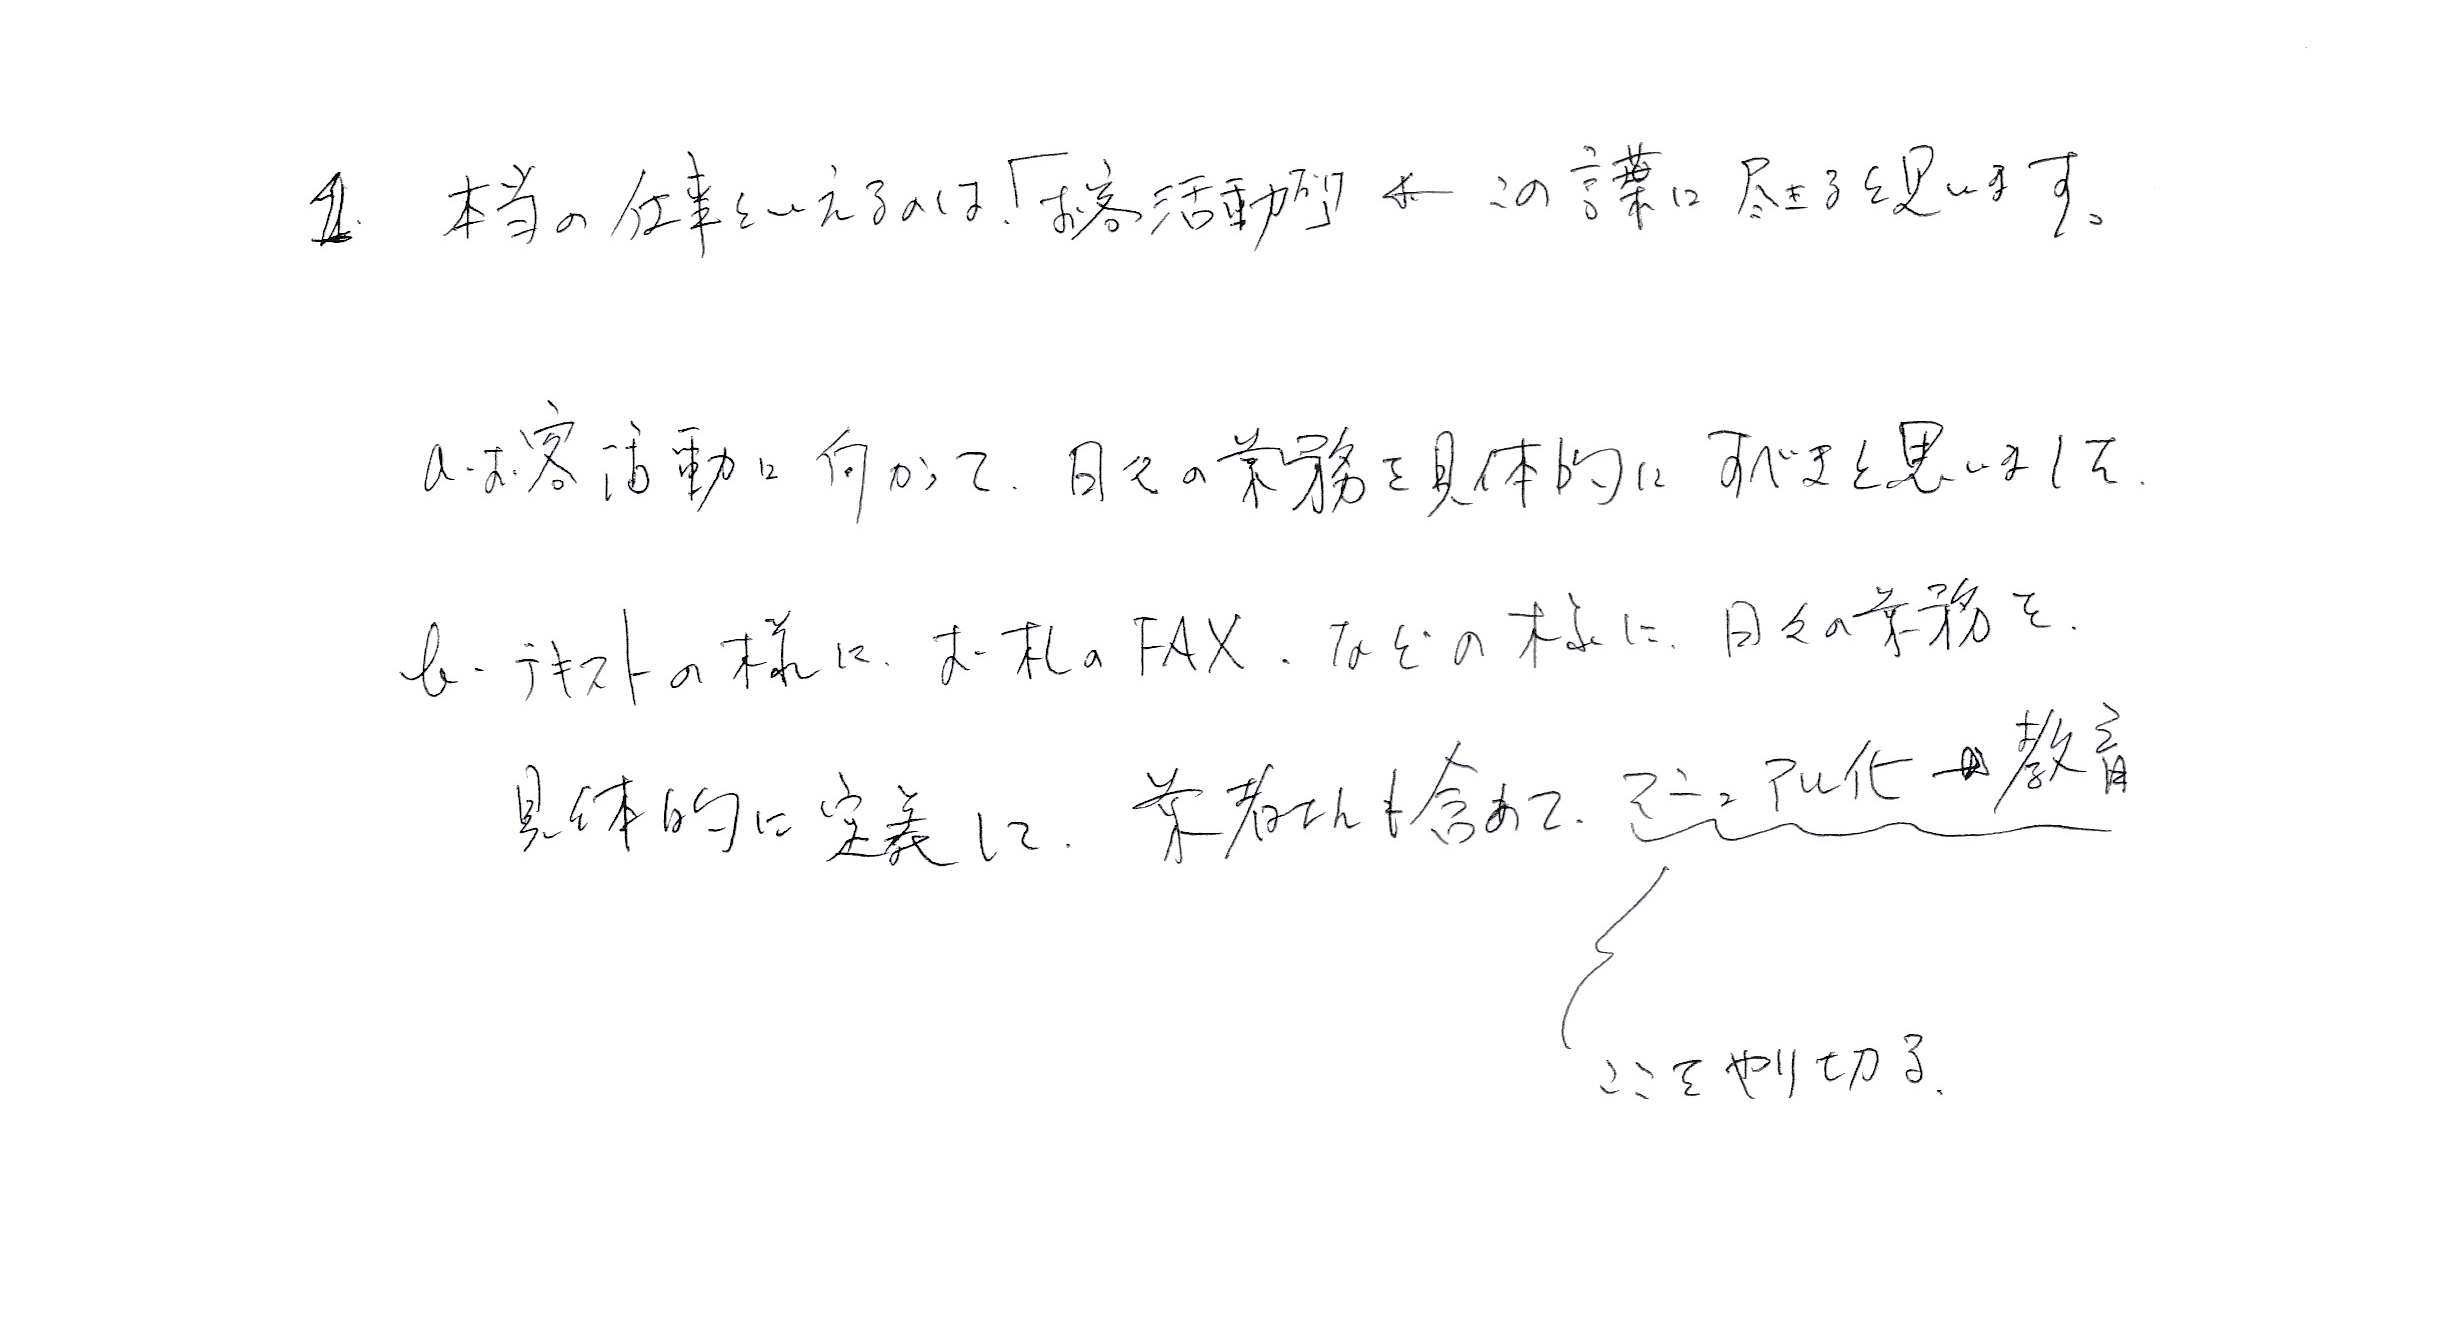 1. 本当の仕事といえるのは、「お客活動」 ← この言葉に尽きると思います。
a. お客活動に向かって、日々の業務を具体的にすべきと思いまして、
b. テキストの様に、お礼のFAX、などの様に、日々の業務を、
具体的に定義して、業者さんも含めて、マニュアル化 → 教育
ここをやり切る、